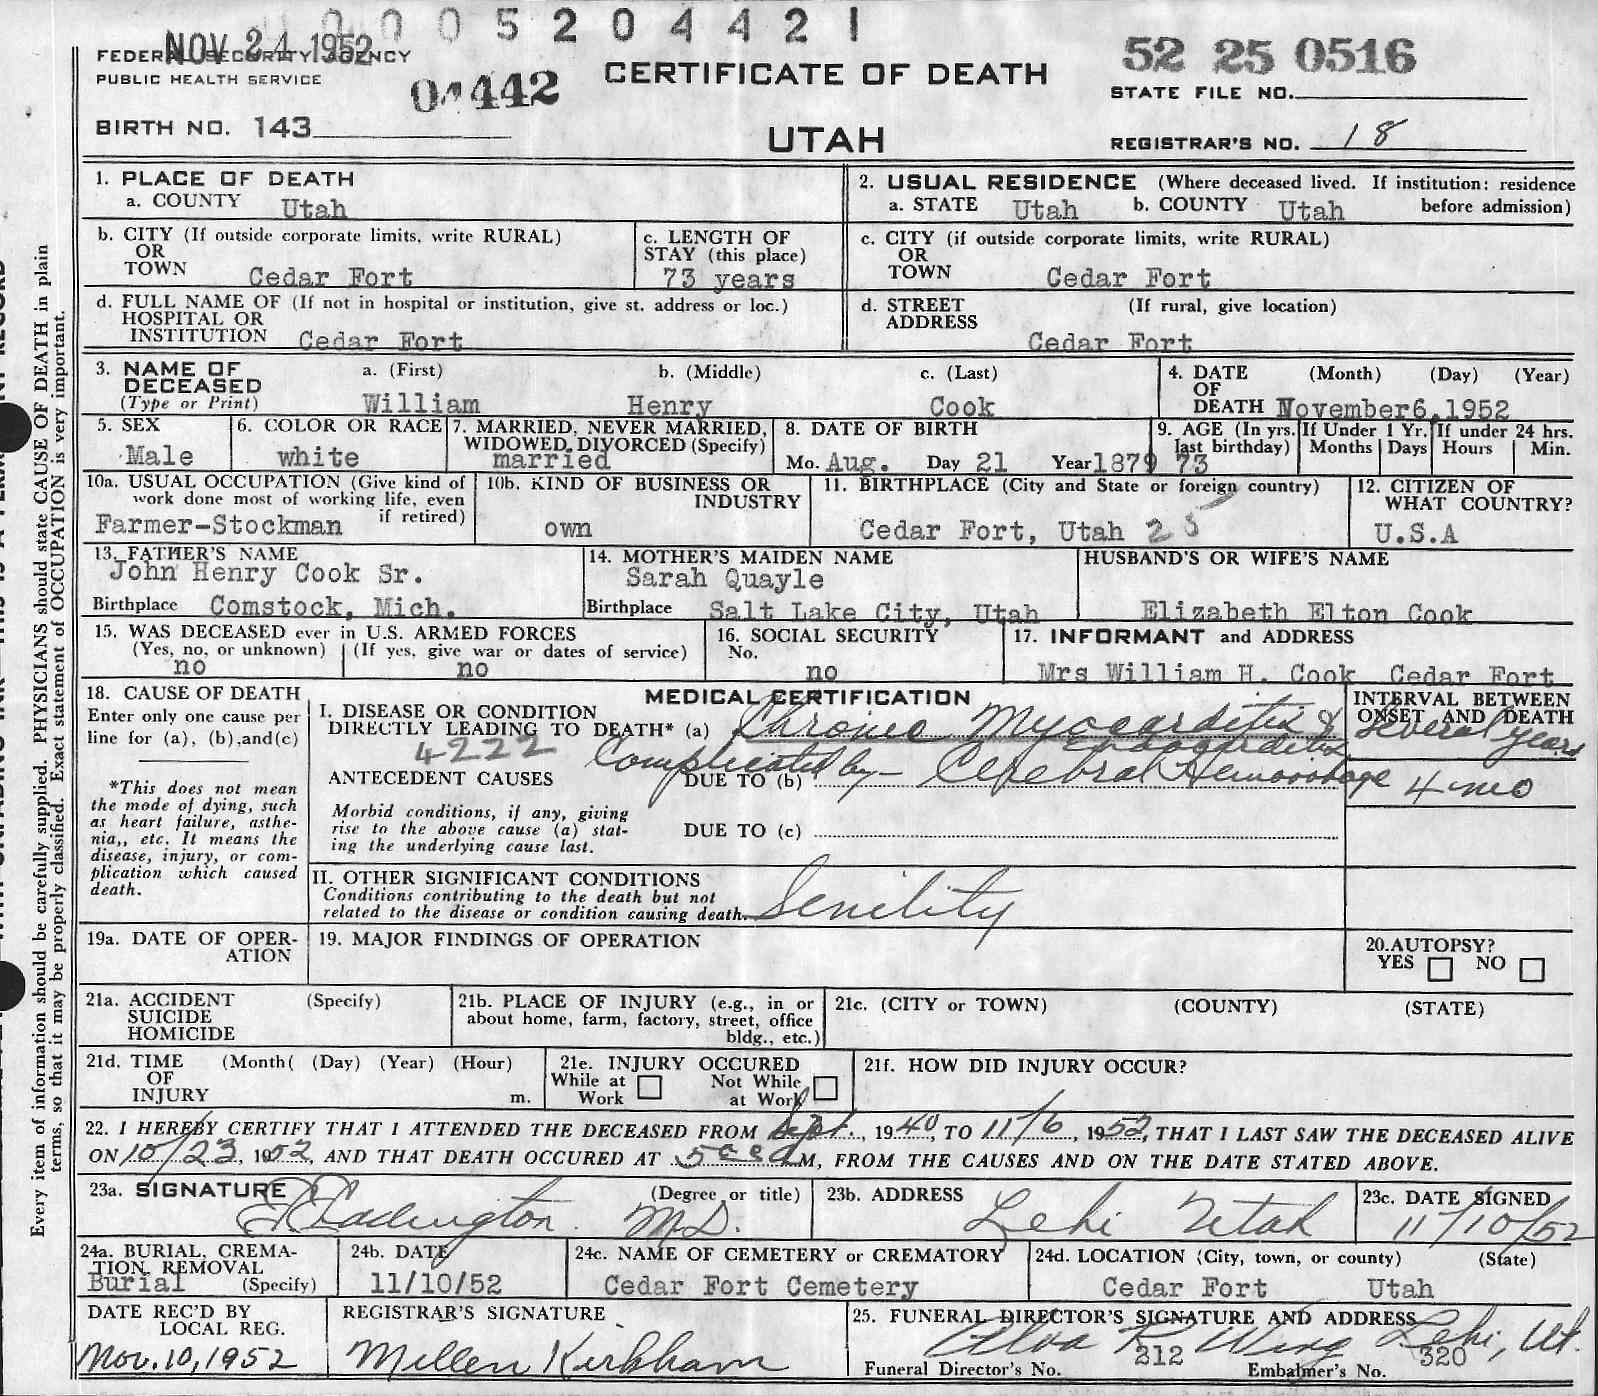 0005204421
NOV 24 1952
FEDERAL SECURITY AGENCY
PUBLIC HEALTH SERVICE
04442
CERTIFICATE OF DEATH
52 25 0516
STATE FILE NO.
BIRTH NO. 143
UTAH
REGISTRAR'S NO. 18
1. PLACE OF DEATH
a. COUNTY Utah
2. USUAL RESIDENCE (Where deceased lived. If institution: residence
a. STATE Utah b. COUNTY Utah before admission)
b. CITY (If outside corporate limits, write RURAL)
OR
TOWN Cedar Fort
c. LENGTH OF
STAY (this place)
73 years
c. CITY (if outside corporate limits, write RURAL)
OR
TOWN Cedar Fort
d. FULL NAME OF (If not in hospital or institution, give st. address or loc.)
HOSPITAL OR
INSTITUTION Cedar Fort
d. STREET (If rural, give location)
ADDRESS
Cedar Fort
3. NAME OF a. (First) b. (Middle) c. (Last)
DECEASED
(Type or Print) William Henry Cook
4. DATE (Month) (Day) (Year)
OF
DEATH November6,1952
5. SEX
Male
6. COLOR OR RACE
white
7. MARRIED, NEVER MARRIED,
WIDOWED, DIVORCED (Specify)
married
8. DATE OF BIRTH
Mo. Aug. Day 21 Year 1879
9. AGE (In yrs. If Under 1 Yr. If under 24 hrs.
last birthday) Months Days Hours Min.
73
10a. USUAL OCCUPATION (Give kind of
work done most of working life, even
if retired)
Farmer-Stockman
10b. KIND OF BUSINESS OR
INDUSTRY
own
11. BIRTHPLACE (City and State or foreign country)
Cedar Fort, Utah 25
12. CITIZEN OF
WHAT COUNTRY?
U.S.A
13. FATHER'S NAME
John Henry Cook Sr.
Birthplace Comstock, Mich.
14. MOTHER'S MAIDEN NAME
Sarah Quayle
Birthplace Salt Lake City, Utah
HUSBAND'S OR WIFE'S NAME
Elizabeth Elton Cook
15. WAS DECEASED ever in U.S. ARMED FORCES
(Yes, no, or unknown) (If yes, give war or dates of service)
no no
16. SOCIAL SECURITY
No.
no
17. INFORMANT and ADDRESS
Mrs William H. Cook Cedar Fort
18. CAUSE OF DEATH
Enter only one cause per
line for (a), (b),and(c)
*This does not mean
the mode of dying, such
as heart failure, asthe-
nia,, etc. It means the
disease, injury, or com-
plication which caused
death.
MEDICAL CERTIFICATION
I. DISEASE OR CONDITION
DIRECTLY LEADING TO DEATH* (a) Chronic Myocarditis &
Endocarditis
4222
Complicated by - Cerebral Hemorrhage
ANTECEDENT CAUSES DUE TO (b)
Morbid conditions, if any, giving
rise to the above cause (a) stat-
ing the underlying cause last.
DUE TO (c)
INTERVAL BETWEEN
ONSET AND DEATH
Several years
4 mo
II. OTHER SIGNIFICANT CONDITIONS
Conditions contributing to the death but not
related to the disease or condition causing death.
Senility
19a. DATE OF OPER-
ATION
19. MAJOR FINDINGS OF OPERATION
20.AUTOPSY?
YES NO
21a. ACCIDENT (Specify)
SUICIDE
HOMICIDE
21b. PLACE OF INJURY (e.g., in or
about home, farm, factory, street, office
bldg., etc.)
21c. (CITY or TOWN) (COUNTY) (STATE)
21d. TIME (Month( (Day) (Year) (Hour)
OF
INJURY m.
21e. INJURY OCCURED
While at Not While
Work at Work
21f. HOW DID INJURY OCCUR?
22. I HEREBY CERTIFY THAT I ATTENDED THE DECEASED FROM Sept., 1940, TO 11/6, 1952, THAT I LAST SAW THE DECEASED ALIVE
ON 10/23, 1952, AND THAT DEATH OCCURED AT M, FROM THE CAUSES AND ON THE DATE STATED ABOVE.
23a. SIGNATURE (Degree or title)
Eddington M.D.
23b. ADDRESS
Lehi Utah
23c. DATE SIGNED
11/10/52
24a. BURIAL, CREMA-
TION, REMOVAL
Burial (Specify)
24b. DATE
11/10/52
24c. NAME OF CEMETERY or CREMATORY
Cedar Fort Cemetery
24d. LOCATION (City, town, or county) (State)
Cedar Fort Utah
DATE REC'D BY
LOCAL REG.
Nov. 10, 1952
REGISTRAR'S SIGNATURE
Millen Kirkham
25. FUNERAL DIRECTOR'S SIGNATURE AND ADDRESS
Alva R Wing Lehi, Ut.
212 320
Funeral Director's No. Embalmer's No.
Every item of information should be carefully supplied. PHYSICIANS should state CAUSE OF DEATH in plain
terms, so that it may be properly classified. Exact statement of OCCUPATION is very important.